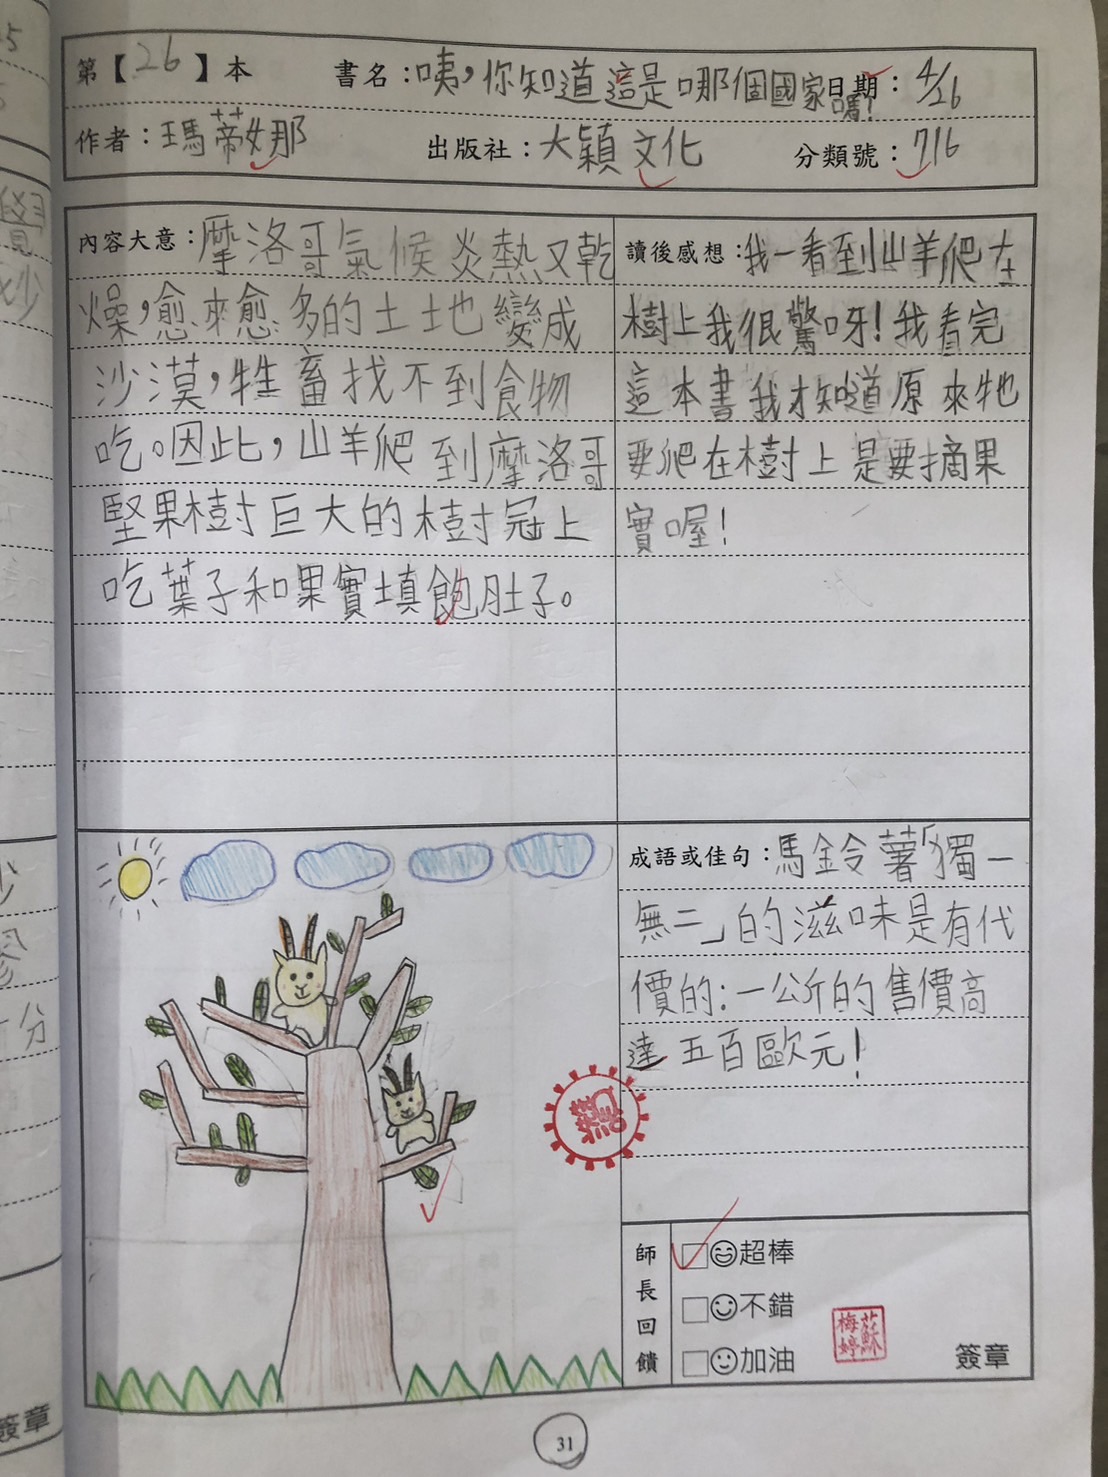 第【26】本 書名：咦，你知道這是哪個國家嗎! 日期：4/26
作者：瑪蒂娜 出版社：大穎文化 分類號：716
內容大意：摩洛哥氣候炎熱又乾
燥，愈來愈多的土地變成
沙漠，牲畜找不到食物
吃。因此，山羊爬到摩洛哥
堅果樹巨大的樹冠上
吃葉子和果實填飽肚子。
讀後感想：我一看到山羊爬在
樹上我很驚呀!我看完
這本書我才知道原來牠
要爬在樹上是要摘果
實喔!
成語或佳句：馬鈴薯「獨一
無二」的滋味是有代
價的:一公斤的售價高
達五百歐元!
師長回饋
超棒
不錯
加油
蘇梅婷
簽章
31
簽章